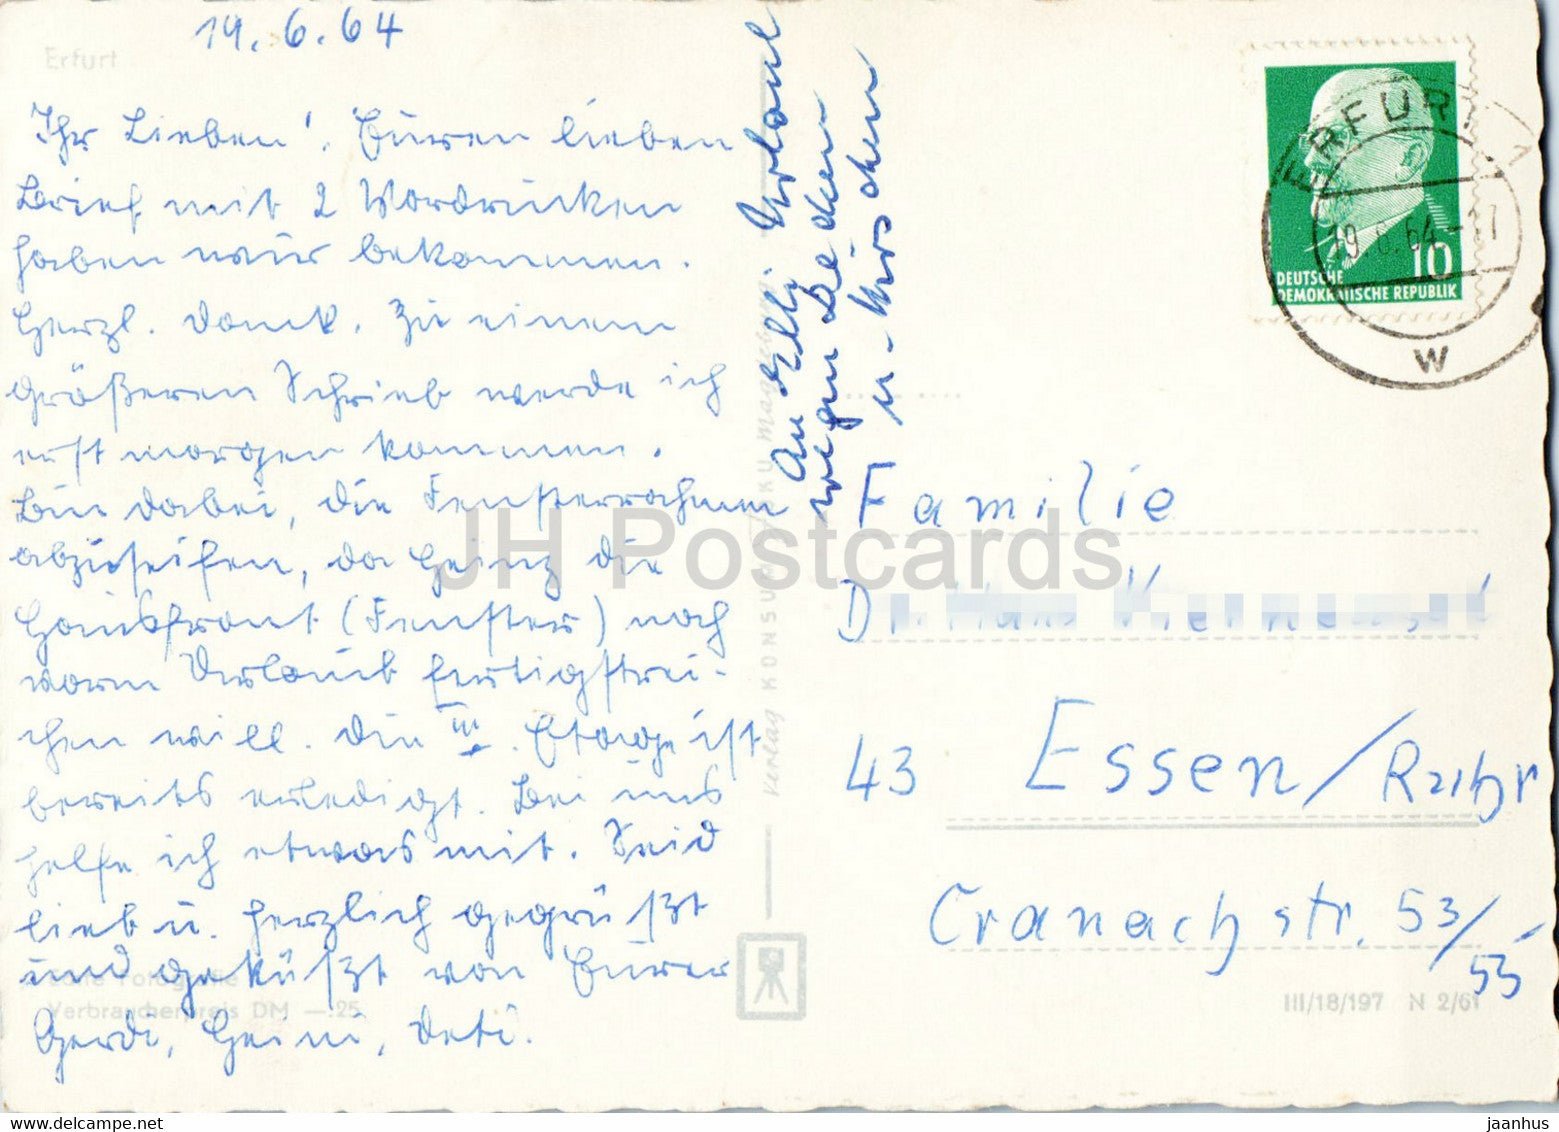 19.6.64
Erfurt
Ihr Lieben! Euren lieben
Brief mit 2 Vordrucken
haben wir bekommen.
Herzl. Dank. Zu einem
größeren Schrieb werde ich
erst morgen kommen.
Bin dabei, die Fensterrahmen
abzuseifen, da Heinz die
Hausfront (Fenster) noch
vorm Urlaub fertigstrei-
chen will. Die III. Etage ist
bereits erledigt. Bei uns
helfe ich etwas mit. Seid
lieb u. herzlich gegrüßt
und geküßt von Eurer
Gerdi, Heini,
Echte Fotografie
Verbraucherpreis DM —.25
An Elli Urlaub
wegen Decken
u.
Verlag KONSUM
JH Postcards
ERFURT 1
19.6.64-17
W
10
DEUTSCHE
DEMOKRATISCHE REPUBLIK
Familie
Dr.
43 Essen/Ruhr
Cranachstr. 53/
55
III/18/197 N 2/61
www.delcampe.net
jaanhus